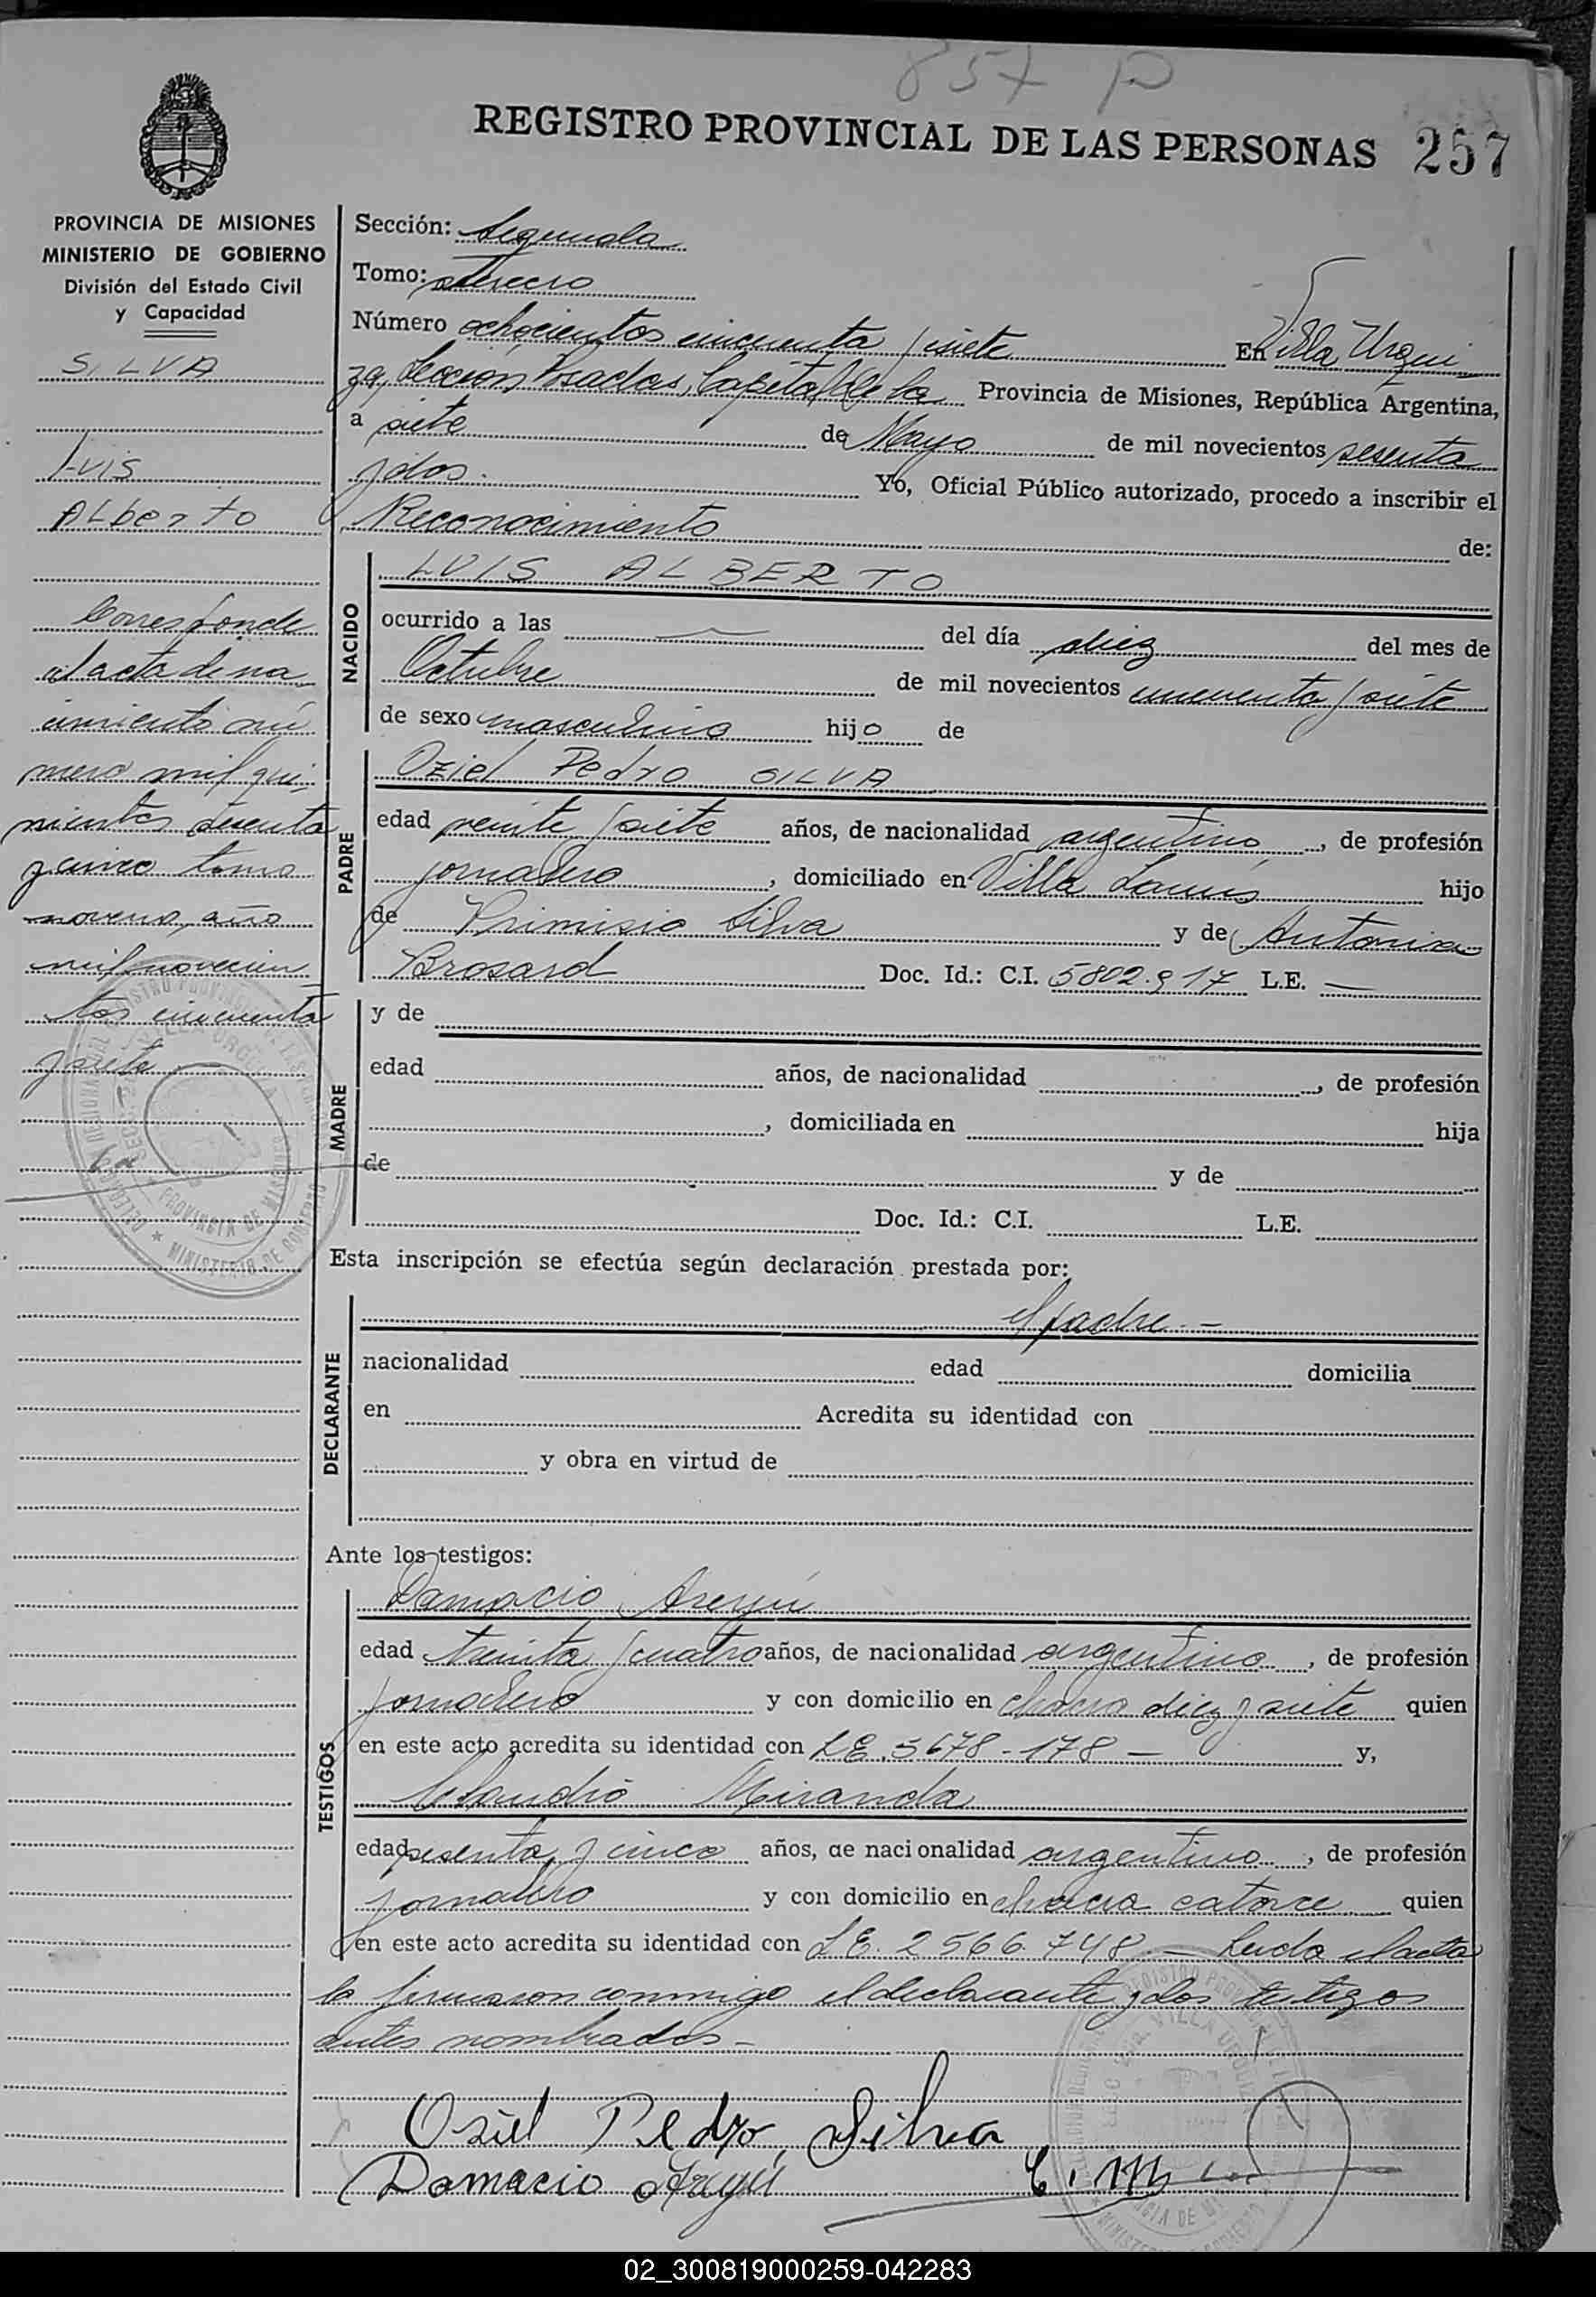 857 P
REGISTRO PROVINCIAL DE LAS PERSONAS 257
PROVINCIA DE MISIONES
MINISTERIO DE GOBIERNO
División del Estado Civil
y Capacidad
SILVA
Luis
Alberto
Corresponde
al acta de na
cimiento nú
mero mil qui
nientos sesenta
y cinco tomo
noveno, año
mil novecien
tos cincuenta
y siete
Sección: Segunda
Tomo: tercero
Número ochocientos cincuenta y siete En Villa Urqui
za, Sección Posadas, Capital de la Provincia de Misiones, República Argentina,
a siete de Mayo de mil novecientos sesenta
y dos. Yo, Oficial Público autorizado, procedo a inscribir el
Reconocimiento de:
NACIDO
LUIS ALBERTO
ocurrido a las — del día diez del mes de
Octubre de mil novecientos cincuenta y siete
de sexo masculino hijo de
PADRE
Oziel Pedro SILVA
edad veinte y siete años, de nacionalidad argentino, de profesión
jornalero, domiciliado en Villa Lanús hijo
de Primisio Silva y de Antonisa
Brosard Doc. Id.: C.I. 5802.917 L.E. —
MADRE
y de
edad años, de nacionalidad , de profesión
, domiciliada en hija
de y de
Doc. Id.: C.I. L.E.
Esta inscripción se efectúa según declaración prestada por:
DECLARANTE
el padre. —
nacionalidad edad domicilia
en Acredita su identidad con
y obra en virtud de
Ante los testigos:
TESTIGOS
Damacio Areyú
edad treinta y cuatro años, de nacionalidad argentino, de profesión
jornalero y con domicilio en chacra diez y siete quien
en este acto acredita su identidad con L.E. 5678-178 — y,
Claudio Miranda
edad sesenta y cinco años, de nacionalidad argentino, de profesión
jornalero y con domicilio en chacra catorce quien
en este acto acredita su identidad con L.E. 2566.748. — Leída el acta
la firmaron conmigo el declarante y los testigos
antes nombrados —
Osiel Pedro, Silva
Damacio Areyú C. M
02_300819000259-042283